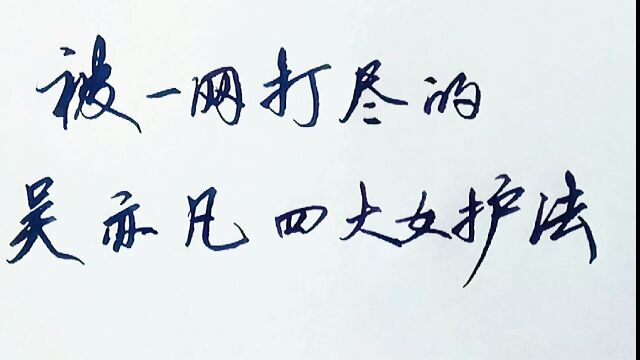 被一网打尽的
吴亦凡四大女护法